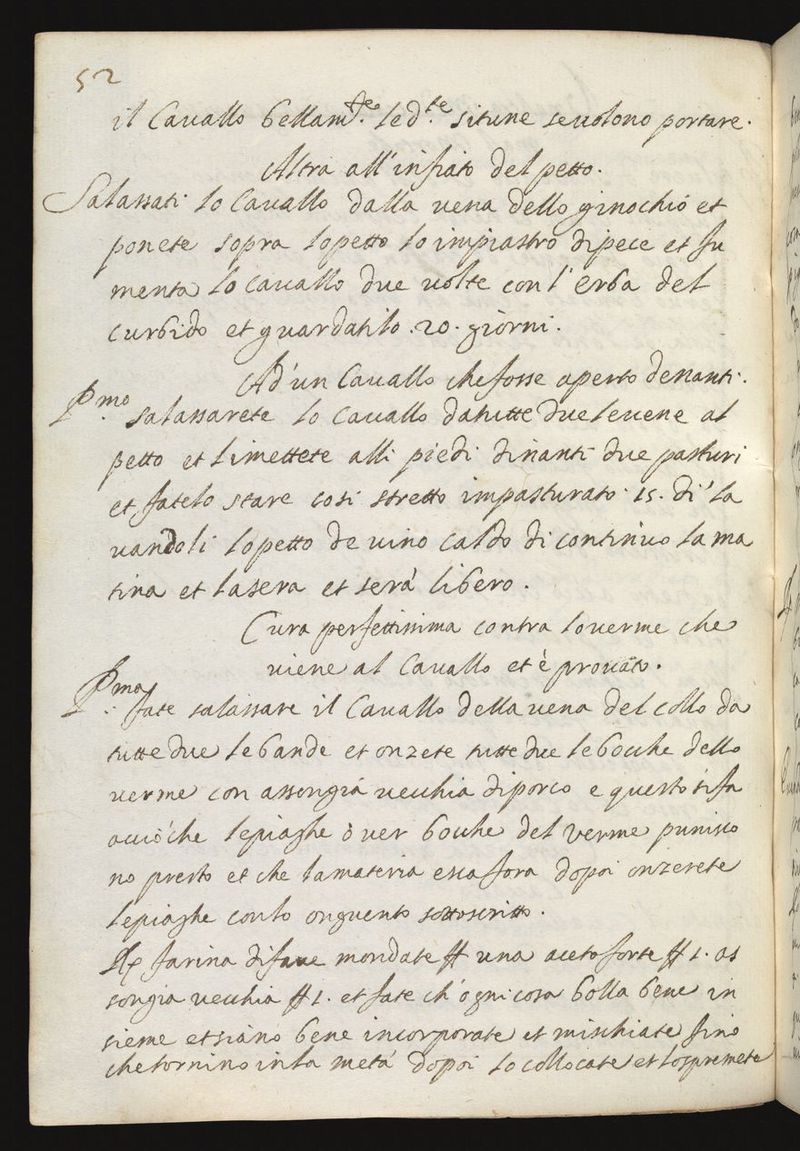 52
il Cauallo bellam.te le d.te situne se uolono portare.
Altra all'infiato del petto.
Salassati lo Cauallo dalla uena dello ginochio et
ponete sopra lo petto lo impiastro di pece et fu
menta lo cauallo due uolte con l'erba del
curbido et guardatilo .20. giorni.
Ad'un Cauallo che fosse aperto denanti.
P.mo salassarete lo cauallo da tutte due le uene al
petto et li mettete alli piedi dinanti due pasturi
et fatelo stare cosi stretto impasturato 15. di' la
uandoli lo petto de uino caldo di continuo la ma
tina et la sera et serà libero.
Cura perfettissima contra lo uerme che
uiene al Cauallo et è prouato.
P.ma fate salassare il Cauallo della uena del collo da
tutte due le bande et onzete tutte due le bocche dello
uerme con assongia uecchia di porco e questo si fa
acciò che le piaghe ò uer bocche del uerme punisco
no presto et che la materia esca fora dopoi onzerete
le piaghe con lo onguento sottoscritto.
Rx farina di faue mondate ff una aceto forte ff 1. as
songia uecchia ff 1. et fate ch'ogni cosa bolla bene in
sieme et siano bene incorporate et mischiate fino
che tornino in la metà dopoi lo collocate et lo spremete